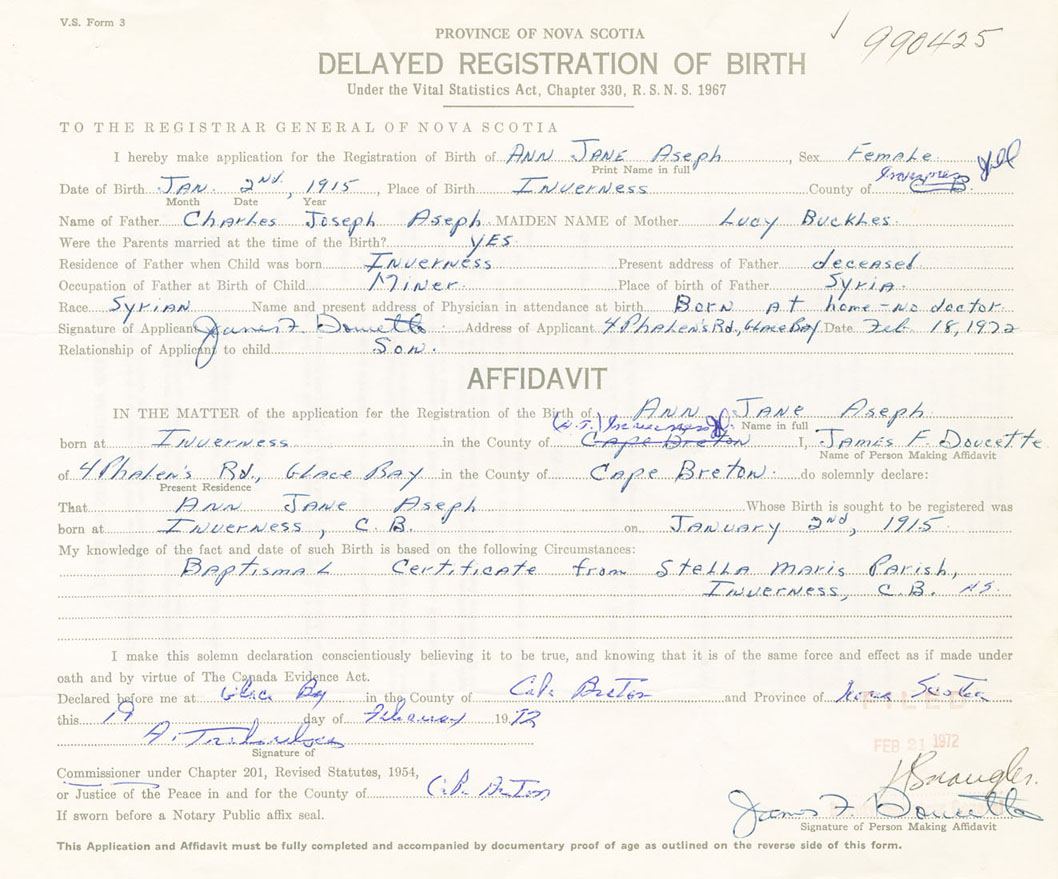 V.S. Form 3
990425
PROVINCE OF NOVA SCOTIA
DELAYED REGISTRATION OF BIRTH
Under the Vital Statistics Act, Chapter 330, R.S.N.S. 1967
TO THE REGISTRAR GENERAL OF NOVA SCOTIA
I hereby make application for the Registration of Birth of ANN JANE Aseph, Sex Female
Print Name in full
Date of Birth JAN. 2nd, 1915, Place of Birth INVERNESS County of Inverness C.B.
Month Date Year
Name of Father Charles Joseph Aseph MAIDEN NAME of Mother Lucy Buckles.
Were the Parents married at the time of the Birth? yES.
Residence of Father when Child was born INVERNESS Present address of Father deceased
Occupation of Father at Birth of Child MINER. Place of birth of Father Syria.
Race SyRIAN Name and present address of Physician in attendance at birth Born At home-No doctor
Signature of Applicant James F. Doucette Address of Applicant 4 Phalen's Rd., Glace Bay Date Feb 18, 1972
Relationship of Applicant to child Son.
AFFIDAVIT
IN THE MATTER of the application for the Registration of the Birth of ANN JANE Aseph
(A.T.) Inverness Name in full
born at INVERNESS in the County of Cape Breton I, JAMES F. Doucette
Name of Person Making Affidavit
of 4 Phalen's Rd., Glace Bay in the County of Cape Breton. do solemnly declare:
Present Residence
That ANN JANE Aseph Whose Birth is sought to be registered was
born at INVERNESS, C.B. on JANUARY 2nd, 1915.
My knowledge of the fact and date of such Birth is based on the following Circumstances:
Baptismal Certificate from Stella Maris Parish,
INVERNESS, C.B. N.S.
I make this solemn declaration conscientiously believing it to be true, and knowing that it is of the same force and effect as if made under
oath and by virtue of The Canada Evidence Act.
Declared before me at Glace Bay in the County of Cape Breton and Province of Nova Scotia
this 19 day of February 1972
FILED
FEB 21 1972
Signature of
Commissioner under Chapter 201, Revised Statutes, 1954,
or Justice of the Peace in and for the County of Cape Breton
James F. Doucette
If sworn before a Notary Public affix seal.
Signature of Person Making Affidavit
This Application and Affidavit must be fully completed and accompanied by documentary proof of age as outlined on the reverse side of this form.